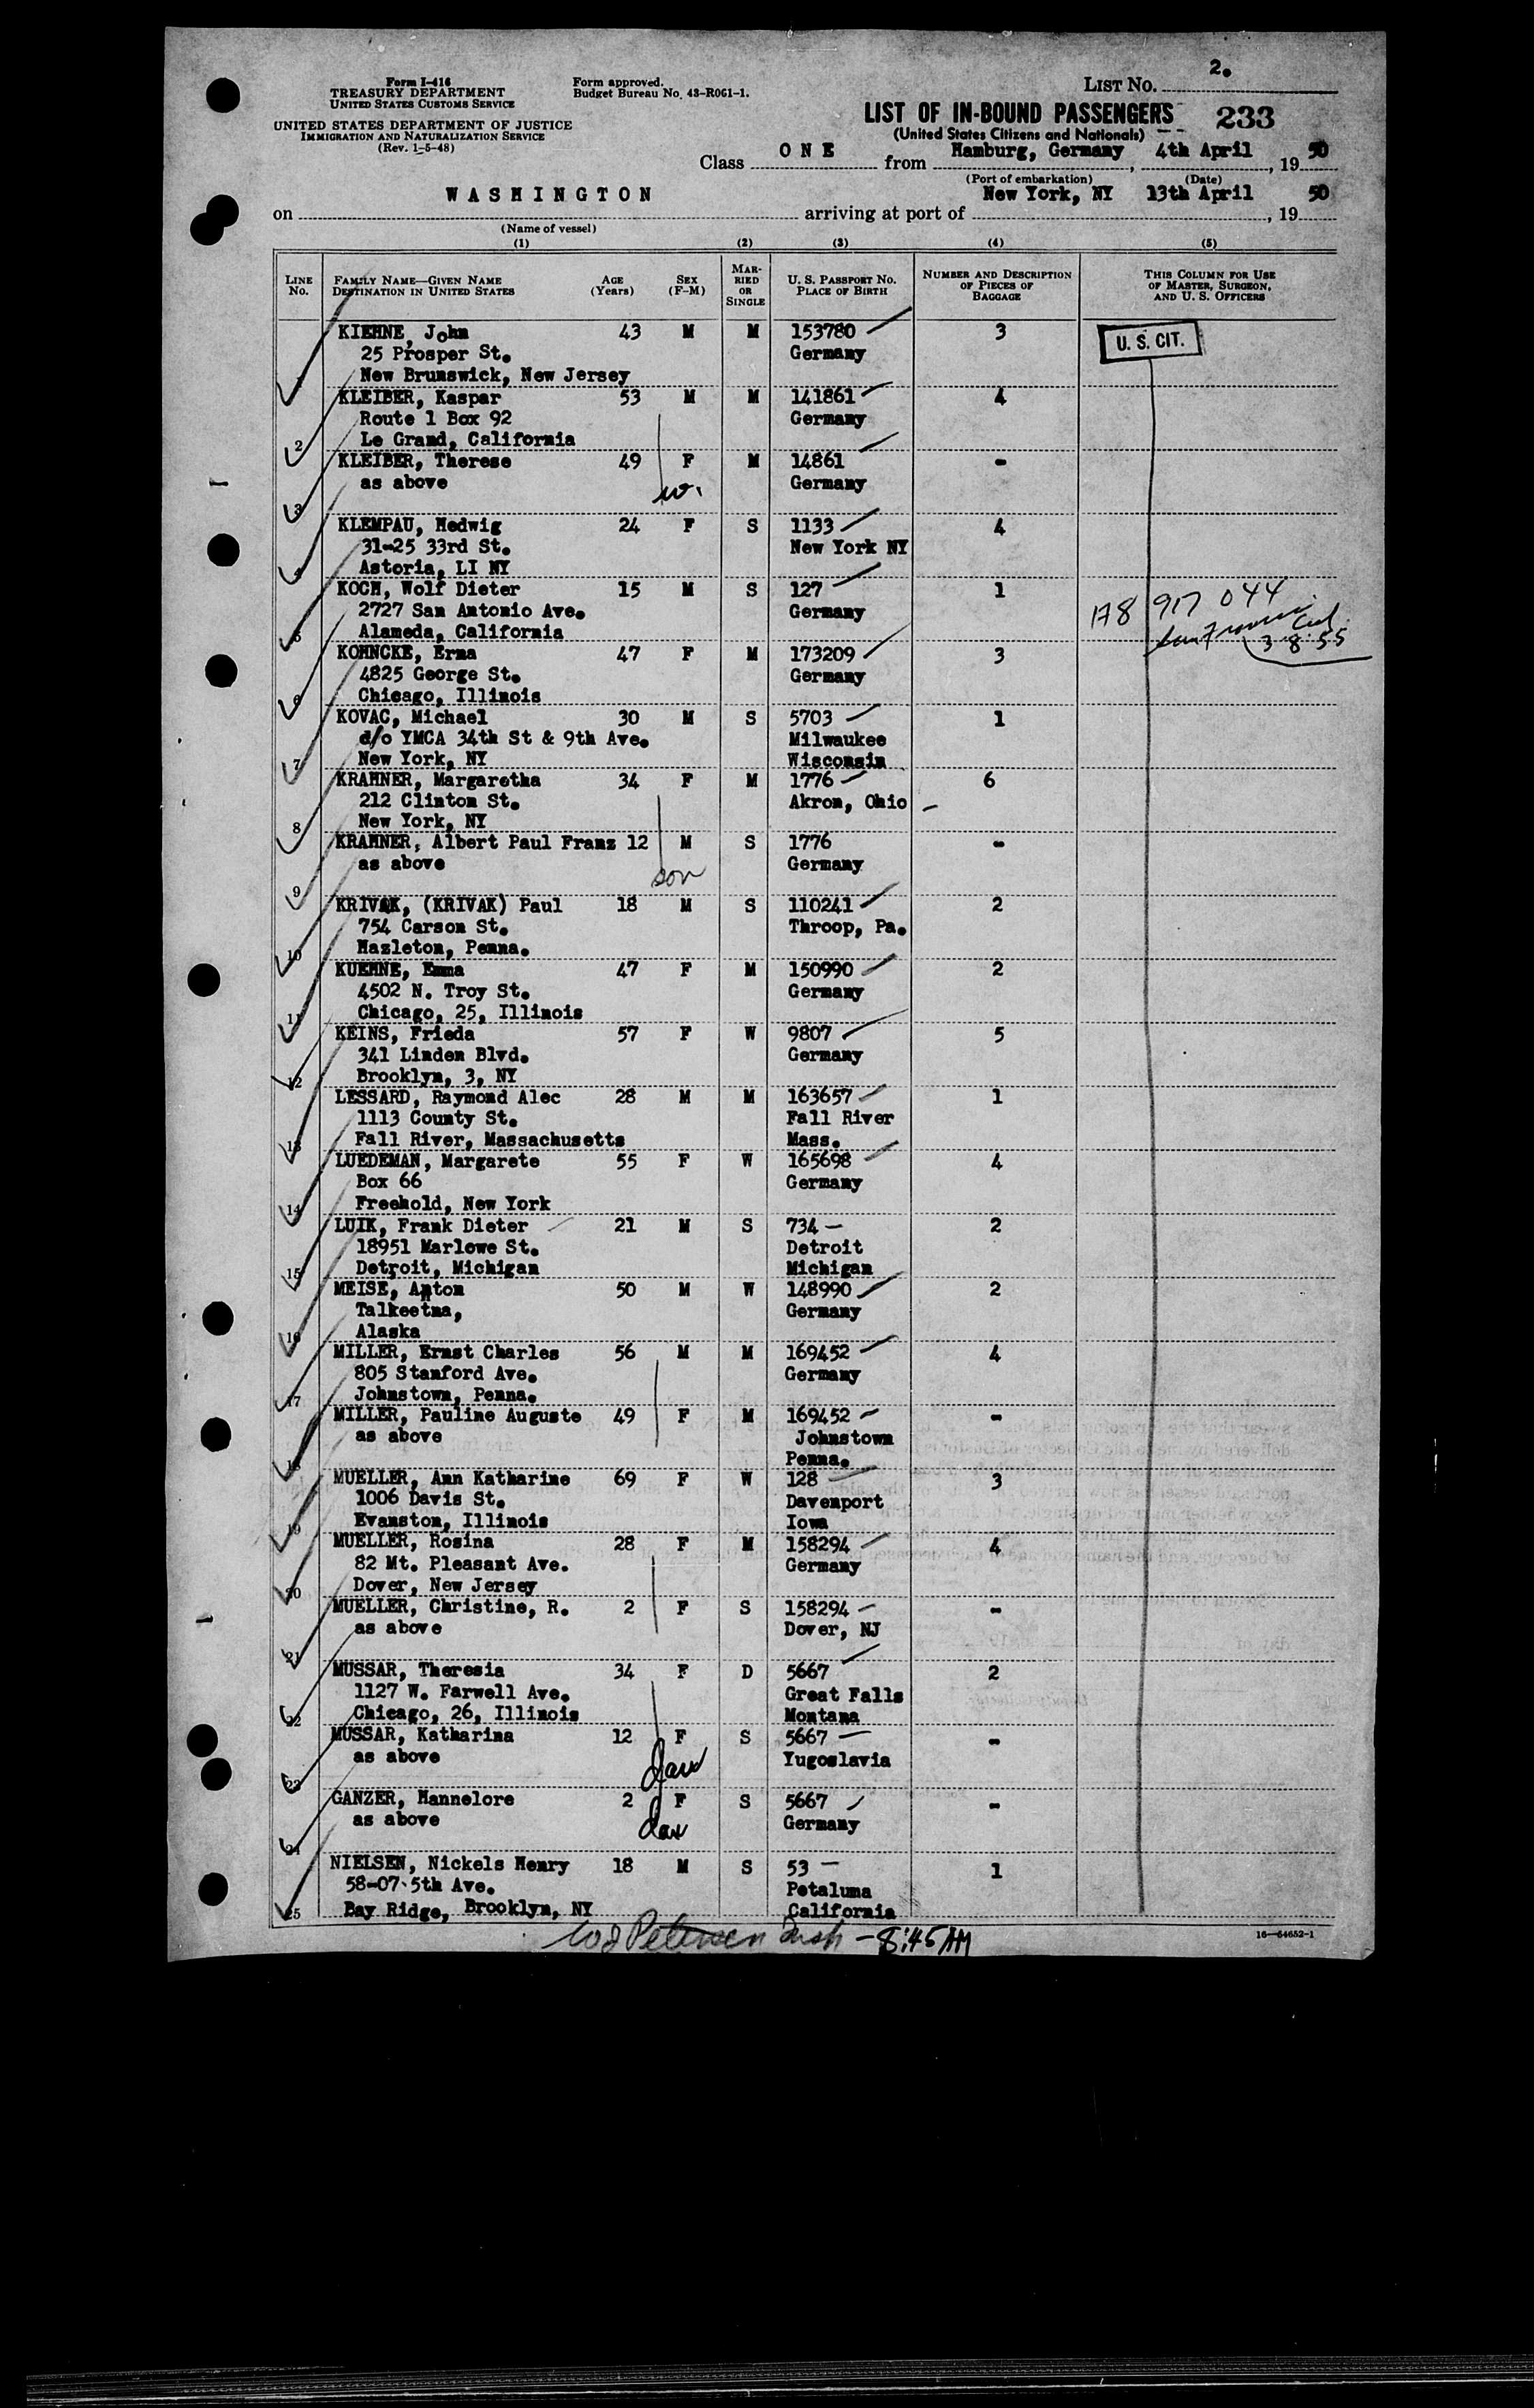 Form I-416
TREASURY DEPARTMENT
UNITED STATES CUSTOMS SERVICE
UNITED STATES DEPARTMENT OF JUSTICE
IMMIGRATION AND NATURALIZATION SERVICE
(Rev. 1-5-48)
Form approved.
Budget Bureau No. 43-R061-1.
LIST No. 2.
LIST OF IN-BOUND PASSENGERS 233
(United States Citizens and Nationals)
Class ONE from Hamburg, Germany, 4th April, 1950
(Port of embarkation) (Date)
on WASHINGTON arriving at port of New York, NY 13th April, 1950
(Name of vessel)
(1) (2) (3) (4) (5)
LINE No. FAMILY NAME—GIVEN NAME DESTINATION IN UNITED STATES AGE (Years) SEX (F-M) MARRIED OR SINGLE U. S. PASSPORT No. PLACE OF BIRTH NUMBER AND DESCRIPTION OF PIECES OF BAGGAGE THIS COLUMN FOR USE OF MASTER, SURGEON, AND U. S. OFFICERS
KIEHNE, John 43 M M 153780 3 U. S. CIT.
25 Prosper St. Germany
1 New Brunswick, New Jersey
KLEIBER, Kaspar 53 M M 141861 4
Route 1 Box 92 Germany
2 Le Grand, California
KLEIBER, Therese 49 F M 14861 -
as above Germany
3 w.
KLEMPAU, Hedwig 24 F S 1133 4
31-25 33rd St. New York NY
4 Astoria, LI NY
KOCH, Wolf Dieter 15 M S 127 1 A8 917 044
2727 San Antonio Ave. Germany
5 Alameda, California 3-8-55
KOHNCKE, Erna 47 F M 173209 3
4825 George St. Germany
6 Chicago, Illinois
KOVAC, Michael 30 M S 5703 1
d/o YMCA 34th St & 9th Ave. Milwaukee
7 New York, NY Wisconsin
KRAHNER, Margaretha 34 F M 1776 6
212 Clinton St. Akron, Ohio -
8 New York, NY
KRAHNER, Albert Paul Franz 12 M S 1776 -
as above son Germany
9
KRIVAK, (KRIVAK) Paul 18 M S 110241 2
754 Carson St. Throop, Pa.
10 Hazleton, Penna.
KUEHNE, Emma 47 F M 150990 2
4502 N. Troy St. Germany
11 Chicago, 25, Illinois
KEINS, Frieda 57 F W 9807 5
341 Linden Blvd. Germany
12 Brooklyn, 3, NY
LESSARD, Raymond Alec 28 M M 163657 1
1113 County St. Fall River
13 Fall River, Massachusetts Mass.
LUEDEMAN, Margarete 55 F W 165698 4
Box 66 Germany
14 Freehold, New York
LUIK, Frank Dieter 21 M S 734 2
18951 Marlowe St. Detroit
15 Detroit, Michigan Michigan
MEISE, Anton 50 M W 148990 2
Talkeetna, Germany
16 Alaska
MILLER, Ernst Charles 56 M M 169452 4
805 Stanford Ave. Germany
17 Johnstown, Penna.
MILLER, Pauline Auguste 49 F M 169452 -
as above Johnstown
18 Penna.
MUELLER, Ann Katharine 69 F W 128 3
1006 Davis St. Davenport
19 Evanston, Illinois Iowa
MUELLER, Rosina 28 F M 158294 4
82 Mt. Pleasant Ave. Germany
20 Dover, New Jersey
MUELLER, Christine, R. 2 F S 158294 -
as above Dover, NJ
21
MUSSAR, Theresia 34 F D 5667 2
1127 W. Farwell Ave. Great Falls
22 Chicago, 26, Illinois Montana
MUSSAR, Katharina 12 F S 5667 -
as above dau Yugoslavia
23
GANZER, Hannelore 2 F S 5667 -
as above dau Germany
24
NIELSEN, Nickels Henry 18 M S 53 1
58-07 5th Ave. Petaluma
25 Bay Ridge, Brooklyn, NY California
Petersen - 8:45 AM
16—64652-1